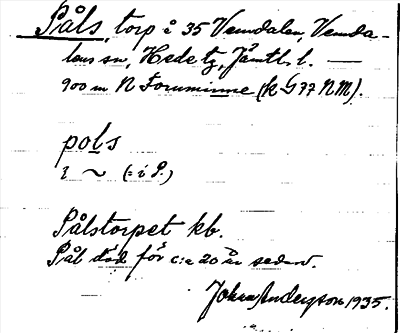 Påls, torp å 35 Vemdalen, Vemda-
lens sn, Hede tg, Jämtl. l. —
900 m N Fornminne (k G 77 NM).
pols
i ~ (= i P.)
Pålstorpet kb.
Pål död för c:a 20 år sedan.
Johan Andersson 1935.